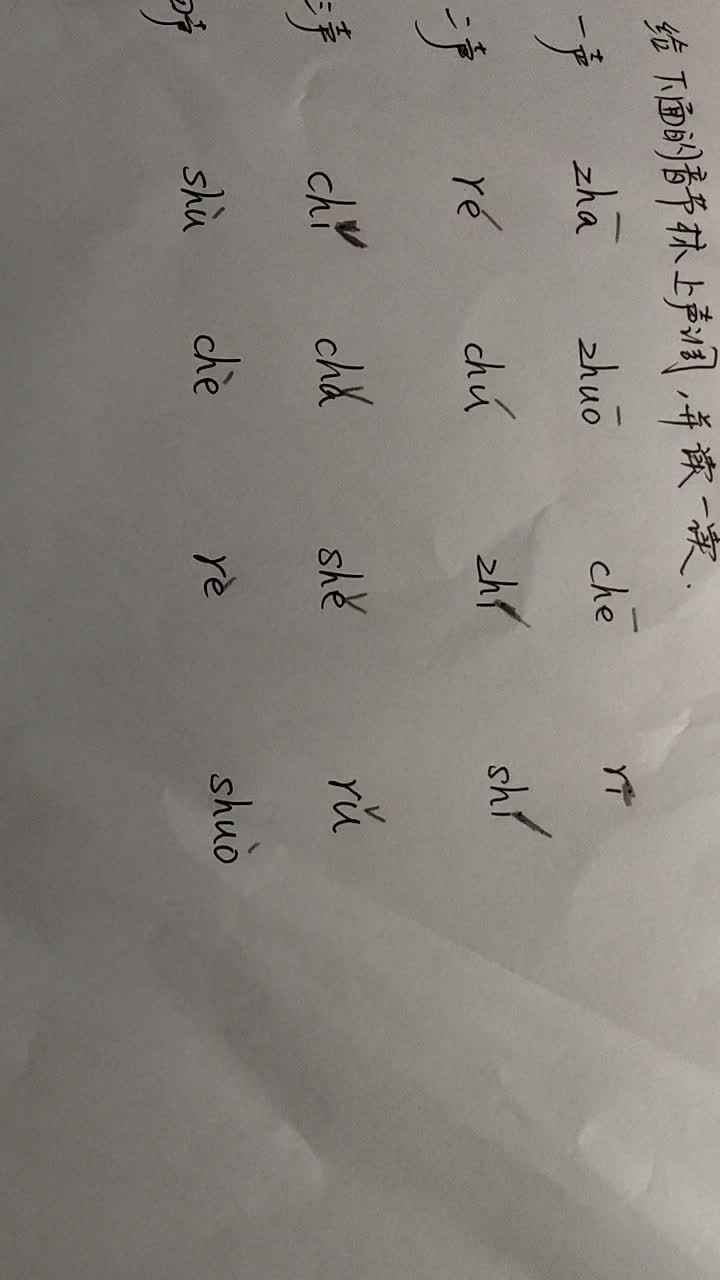 给下面的音节标上声调,并读一读.
一声 zhā zhuō chē rī
二声 ré chú zhí shí
三声 chǐ chǎ shě rǔ
四声 shù chè rè shuò